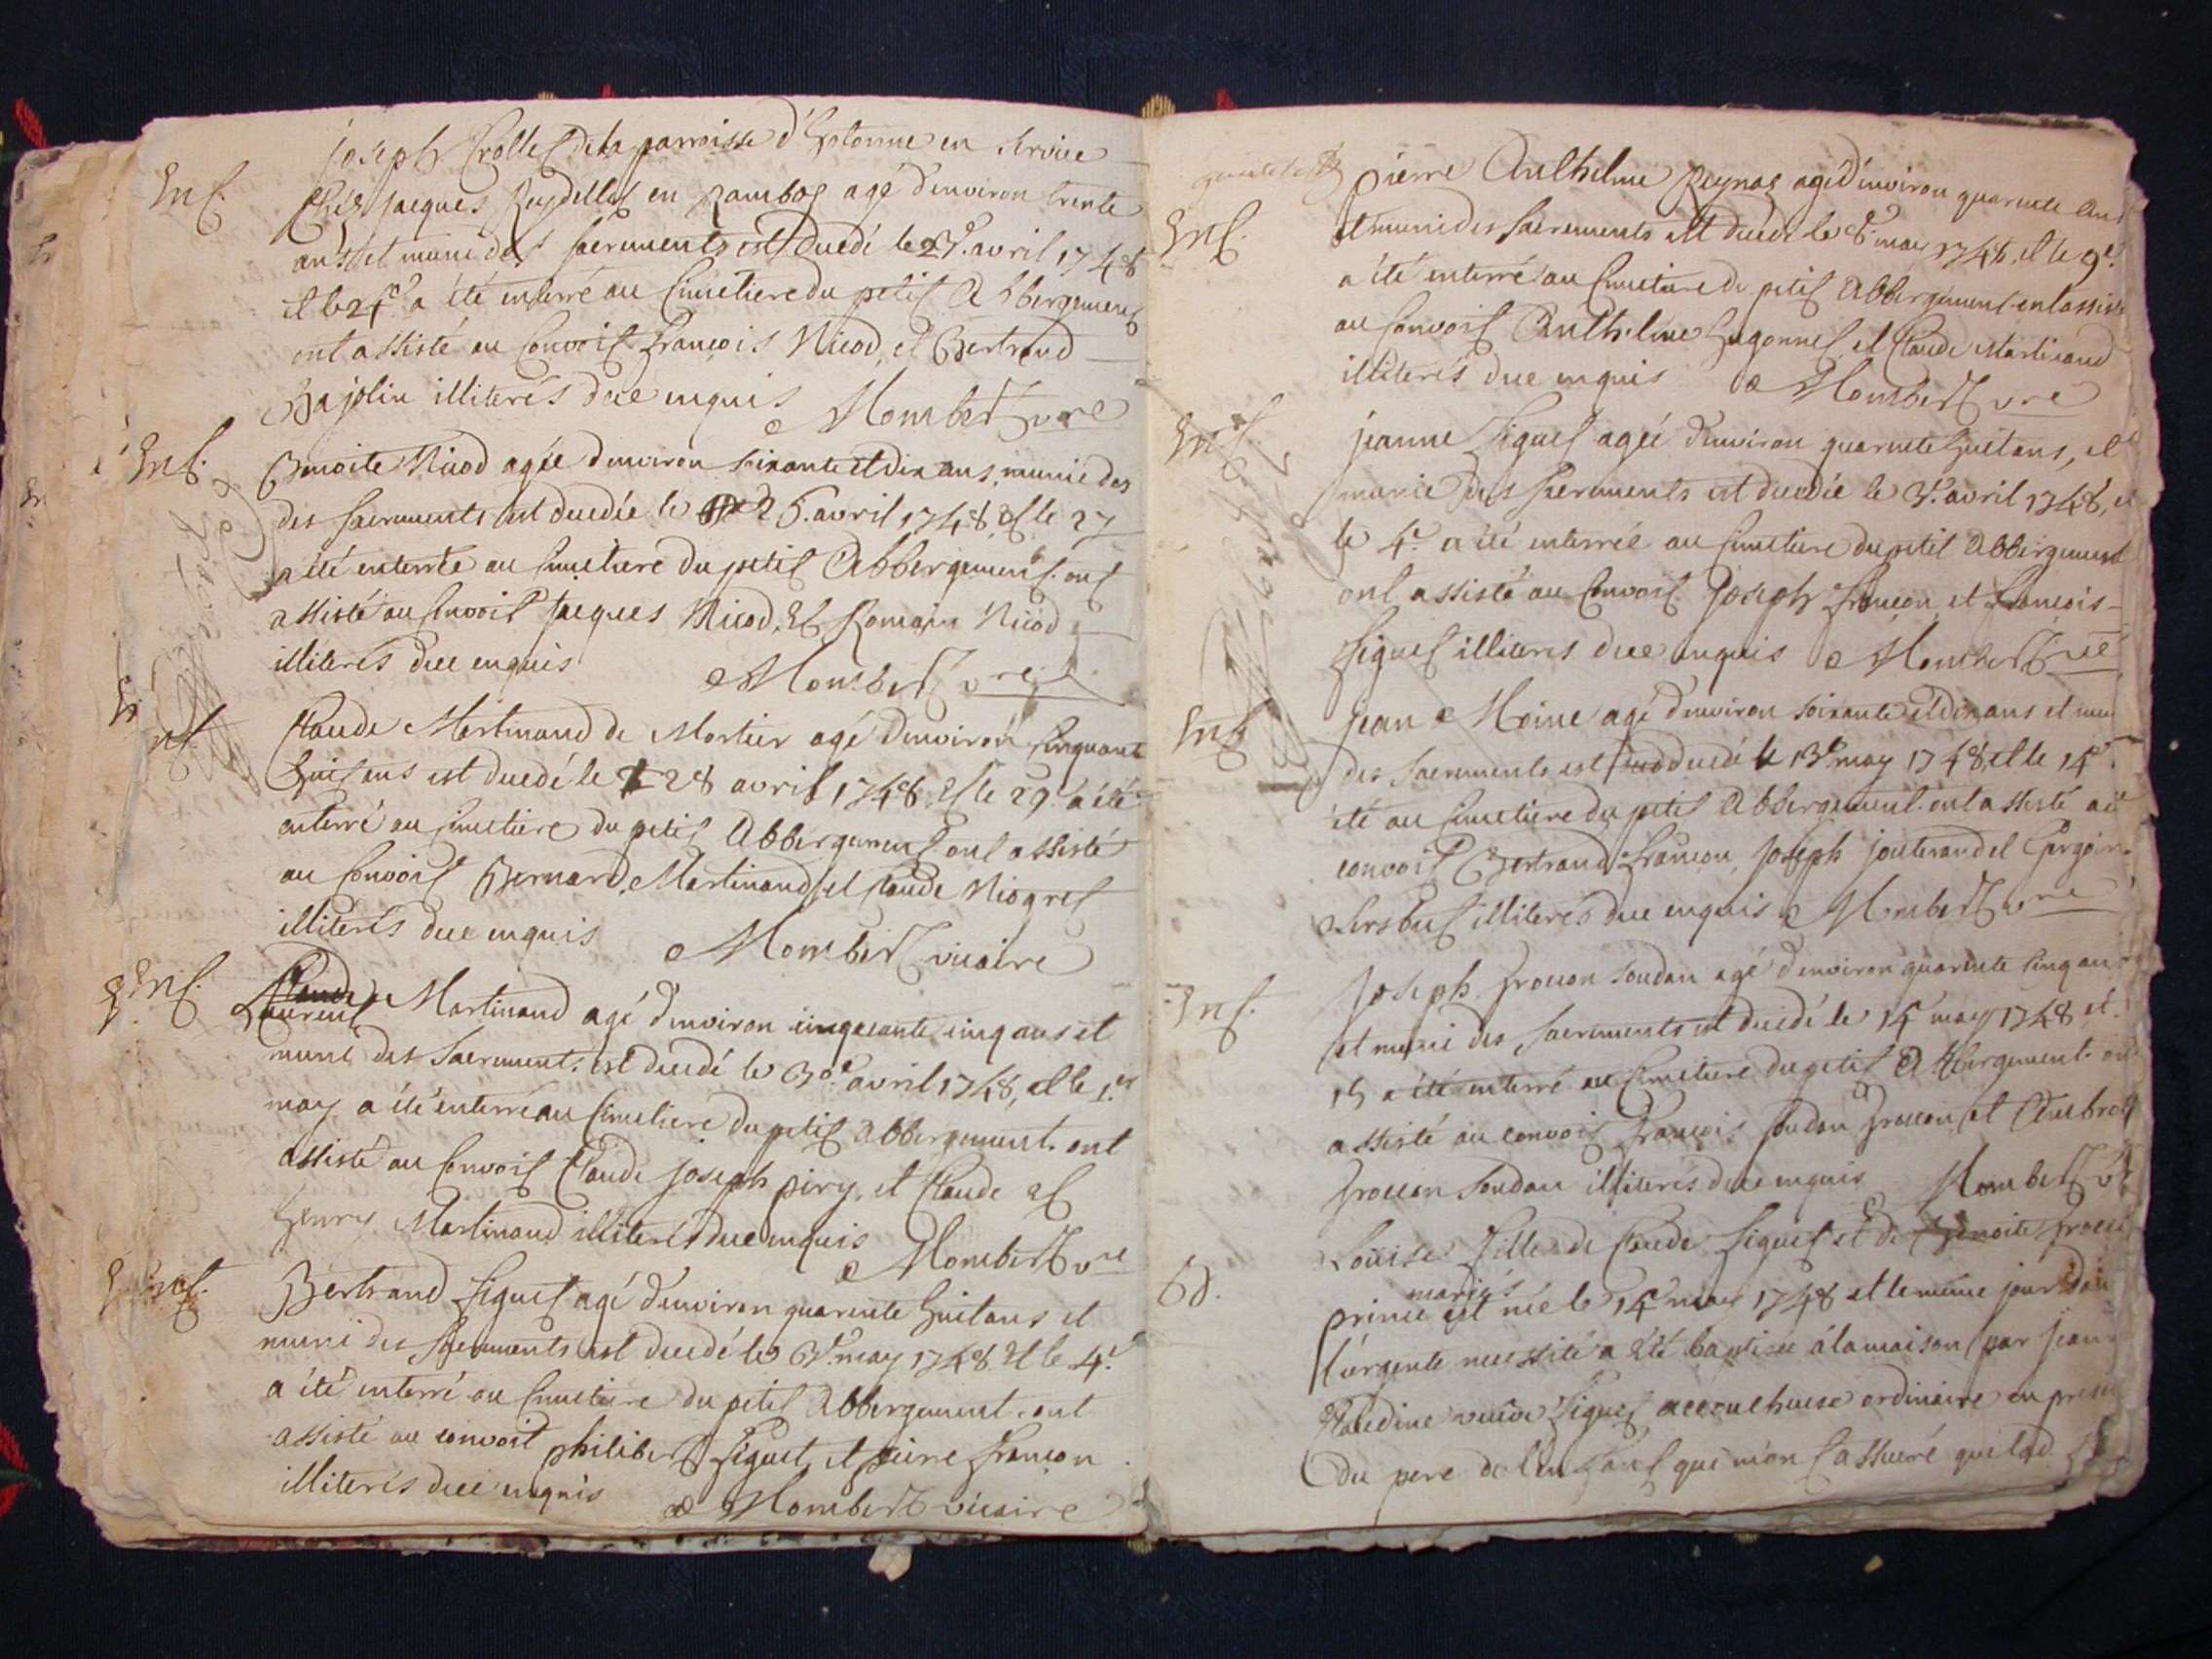 Joseph Crollet de la parroisse d'hotonne en service
Ent.
Chez Jacques Reydellet en Rambog agé d'environ trente
ans et muni des sacrements est decedé le 23e. avril 1748
et le 24e. a été enterré au Cimetiere du petit Abbergement
ont assisté au Convoit François Nicod, et Bertrand
Bajolin illiterés dee enquis Mombert vre
Ent.
Benoite Nicod agée d'environ soixante et dix ans, munie des
des sacrements est decedée le 26. avril 1748, et le 27
a été enterrée au Cimetiere du petit Abbergement. ont
assisté au Convoit Jacques Nicod, et Romain Nicod
illiterés dee enquis Mombert vre
Ent.
Claude Martinand de Mortier agé d'environ Cinquante
huit ans est decedé le 28 avril 1748, et le 29. a été
enterré au Cimetiere du petit Abbergement. ont assisté
au Convoit Bernard Martinand, et Claude Niogret
illiterés dee enquis Mombert vicaire
Ent.
Claude
Laurent Martinand agé d'environ cinquante cinq ans et
muni des sacrements. est decedé le 30e avril 1748, et le 1.er
may a été enterré au Cimetiere du petit Abbergement. ont
assisté au Convoit Claude Joseph piry, et Claude et
henry Martinand illiterés dee enquis
Mombert vre
Ent.
Bertrand Siguet agé d'environ quarente huit ans et
muni des sacrements est decedé le 3e. may 1748. Et le 4.e
a été enterré au Cimetiere du petit Abbergement. ont
assisté au convoit philibert Siguet, et pierre françon
illiterés dee enquis Mombert vicaire
pierre Anthelme Reynas agé d'environ quarente ans
Ent.
et muni des sacrements est decedé le 8e. may 1748, et le 9e.
a été enterré au Cimetiere du petit Abbergement ont assisté
au Convoit Anthelme hugonnet, et Claude Martinand
illiterés dee enquis Mombert vre
Ent.
jeanne Siguet agée d'environ quarente huit ans, et
munie des sacrements est decedée le 3e. avril 1748, et
le 4e. a été enterrée au Cimetiere du petit Abbergement
ont assisté au Convoit Joseph françon, et François
Siguet illiterés dee enquis Mombert vre
Ent.
Jean Moine agé d'environ soixante et dix ans et muni
des sacrements est decedé le 13e may 1748, et le 14e.
été au Cimetiere du petit Abbergement. ont assisté au
convoit Bertrand françon, Joseph jouterand et
illiterés dee enquis Mombert vre
Ent.
Joseph soudan agé d'environ quarente cinq ans
et muni des sacrements est decedé le 14e may 1748 et
15 a été enterré au Cimetiere du petit Abbergement. ont
assisté au convoit François soudan et
soudan illiterés dee enquis Mombert
Bd.
Louise fille de Claude Siguet et de Benoite
mariés
prince est née le 14e may 1748 et le même jour dans
l'urgente necessité a été baptisée à la maison par jeanne
Claudine veuve Siguet accoucheuse ordinaire en presence
du pere de l'enfant qui m'on assuré que lad